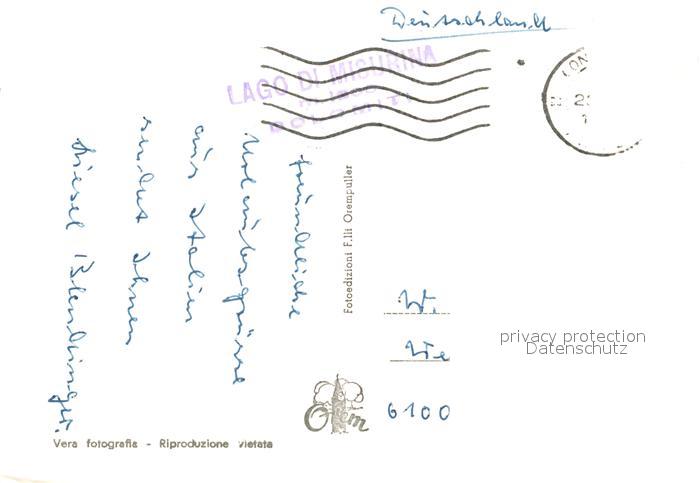 Deutschland
LAGO DI MISURINA
m. 1800
DOLOMITI
freundliche
Urlaubsgrüsse
aus Italien
sendet Ihnen
Fotoedizioni F.lli Orempuller
W.
privacy protection
Datenschutz
6100
Orem
Vera fotografia - Riproduzione vietata